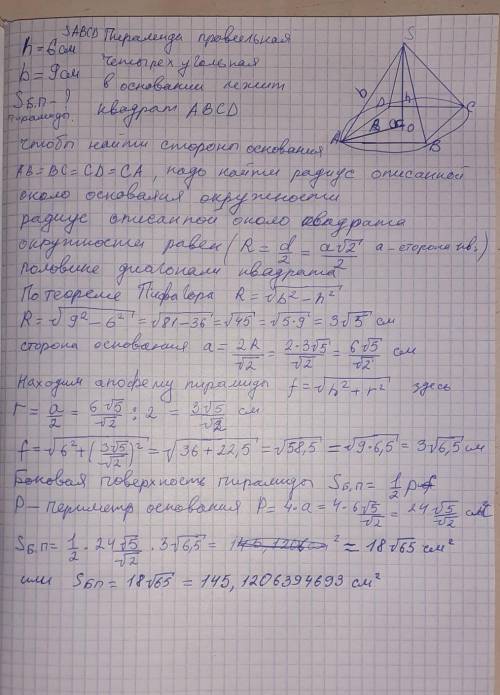 SABCD Пирамида правильная
h = 6 см четырехугольная
b = 9 см в основании лежит
Sб.п - ? квадрат ABCD
пирамиды
S
b
D
h
C
A
R
O
B
чтобы найти стороны основания
AB = BC = CD = CA, надо найти радиус описанной
около основания окружности
радиус описанной около квадрата
окружности равен (R = d/2 = a√2/2 a - сторона кв.)
половине диагонали квадрата
По теореме Пифагора R = √(b² - h²)
R = √(9² - 6²) = √(81 - 36) = √45 = √(5·9) = 3√5 см
сторона основания a = 2R/√2 = 2·3√5/√2 = 6√5/√2 см
Находим апофему пирамиды f = √(h² + r²) здесь
r = a/2 = 6√5/√2 : 2 = 3√5/√2 см
f = √(6² + (3√5/√2)²) = √(36 + 22,5) = √58,5 = √(9·6,5) = 3√6,5 см
Боковая поверхность пирамиды Sб.п = 1/2 pf
P - периметр основания P = 4·a = 4·6√5/√2 = 24√5/√2 см
Sб.п = 1/2 · 24√5/√2 · 3√6,5 = ² = 18√65 см²
или Sбп = 18√65 = 145,1206394693 см²